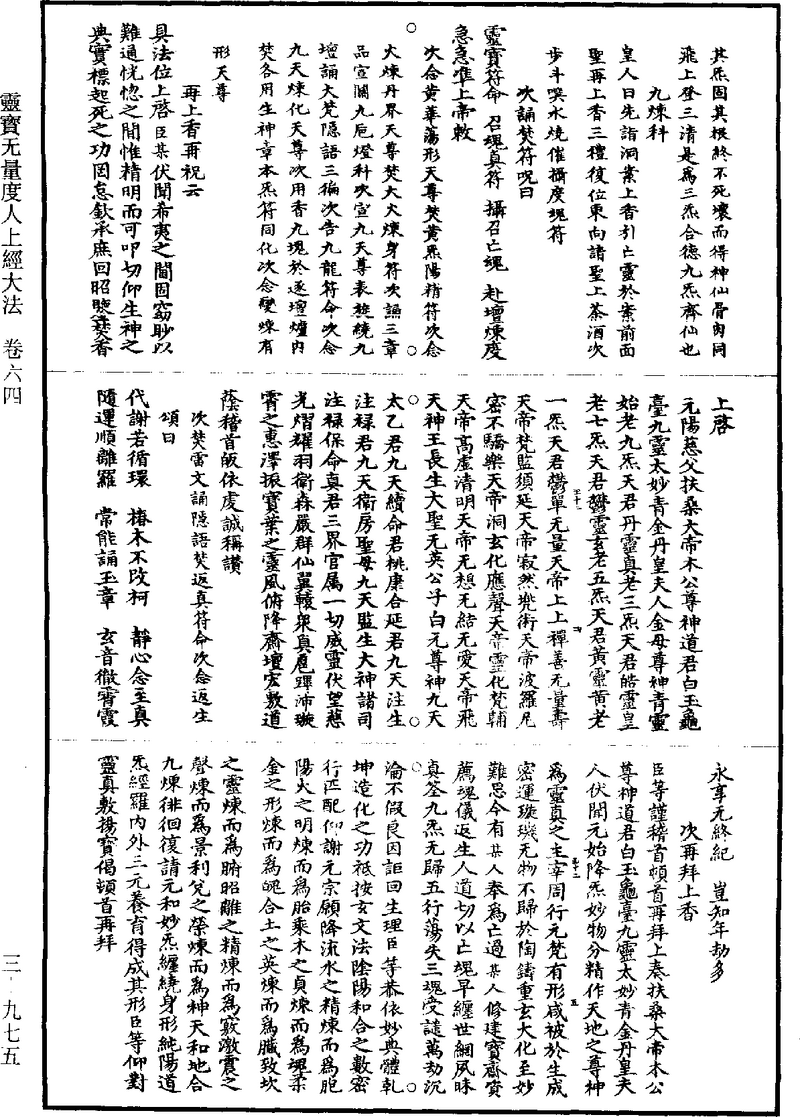 其炁固其根終不死壞而得神仙骨肉同
飛上登三清是爲三炁合德九炁齊仙也
九煉科
皇人曰先詣洞案上香引亡靈於案前面
聖再上香三禮復位東向請聖上茶酒次
步斗噀水燒催攝度魂符
次誦焚符呪曰
靈寶符命 召魂真符 攝召亡魂 赴壇煉度
急急准上帝敕
次念黄華蕩形天尊焚黄炁陽精符次念
火煉丹界天尊焚大火煉身符次誦三章
品宣關九巵燈科次宣九天尊表旋繞九
壇誦大梵隱語三徧次告九龍符命次念
九天煉化天尊次用香九塊於逐壇爐内
焚各用生神章本炁符同化次念變煉有
形天尊
再上香再祝云
具法位上啓臣某伏聞希夷之間固窈眇以
難通恍惚之間惟精明而可叩切仰生神之
典實標起死之功罔怠欽承庶回昭晓爇香
上啓
元陽慈父扶桑大帝木公尊神道君白玉龜
臺九靈太妙青金丹皇夫人金母尊神青靈
始老九炁天君丹靈真老三炁天君皓靈皇
老七炁天君鬱靈玄老五炁天君黄靈黄老
一炁天君鬱單无量天帝上上禪善无量壽
天帝梵監須延天帝寂然兜術天帝波羅尼
密不驕樂天帝洞玄化應聲天帝靈化梵輔
天帝高虚清明天帝无想无結无愛天帝飛
天神王長生大聖无英公子白元尊神九天
太乙君九天續命君桃康合延君九天注生
注禄君九天衛房聖母九天監生大神諸司
注禄保命真君三界官屬一切威靈伏望慈
光熠耀羽衛森嚴群仙翼轅衆真扈蹕沛璇
霄之惠澤振寶葉之靈風俯降齋壇宏敷道
蔭稽首皈依虔誠稱讚
次焚雷文誦隱語焚返真符命次念返生
頌曰
代謝若循環 椿木不改柯 静心念至真
隨運順離羅 常能誦玉章 玄音徹霄霞
永享无終紀 豈知年劫多
次再拜上香
臣等謹稽首頓首再拜上奏扶桑大帝木公
尊神道君白玉龜臺九靈太妙青金丹皇夫
人伏聞元始降炁妙物分精作天地之尊神
爲靈真之主宰周行元梵有形咸被於生成
密運璇璣无物不歸於陶鑄重玄大化至妙
難思今有某人奉爲亡過某人修建寶齋資
薦魂儀返生人道切以亡魂早纏世網夙昧
真筌九炁无歸五行蕩失三魂受譴萬劫沉
淪不假良因詎回生理臣等恭依妙典體乾
坤造化之功祗按玄文法陰陽和合之數密
行匹配仰謝元宗願降流水之精煉而爲胞
陽火之明煉而爲胎乘木之貞煉而爲魂柔
金之形煉而爲魄合土之英煉而爲臟致坎
之靈煉而爲腑昭離之精煉而爲竅激震之
聲煉而爲景利兌之榮煉而爲神天和地合
九煉徘徊復請元和妙炁纏繞身形純陽道
炁經羅内外三元養育得成其形臣等仰對
靈真敷揚寶偈頓首再拜
靈寶无量度人上經大法 卷六四
三·九七五